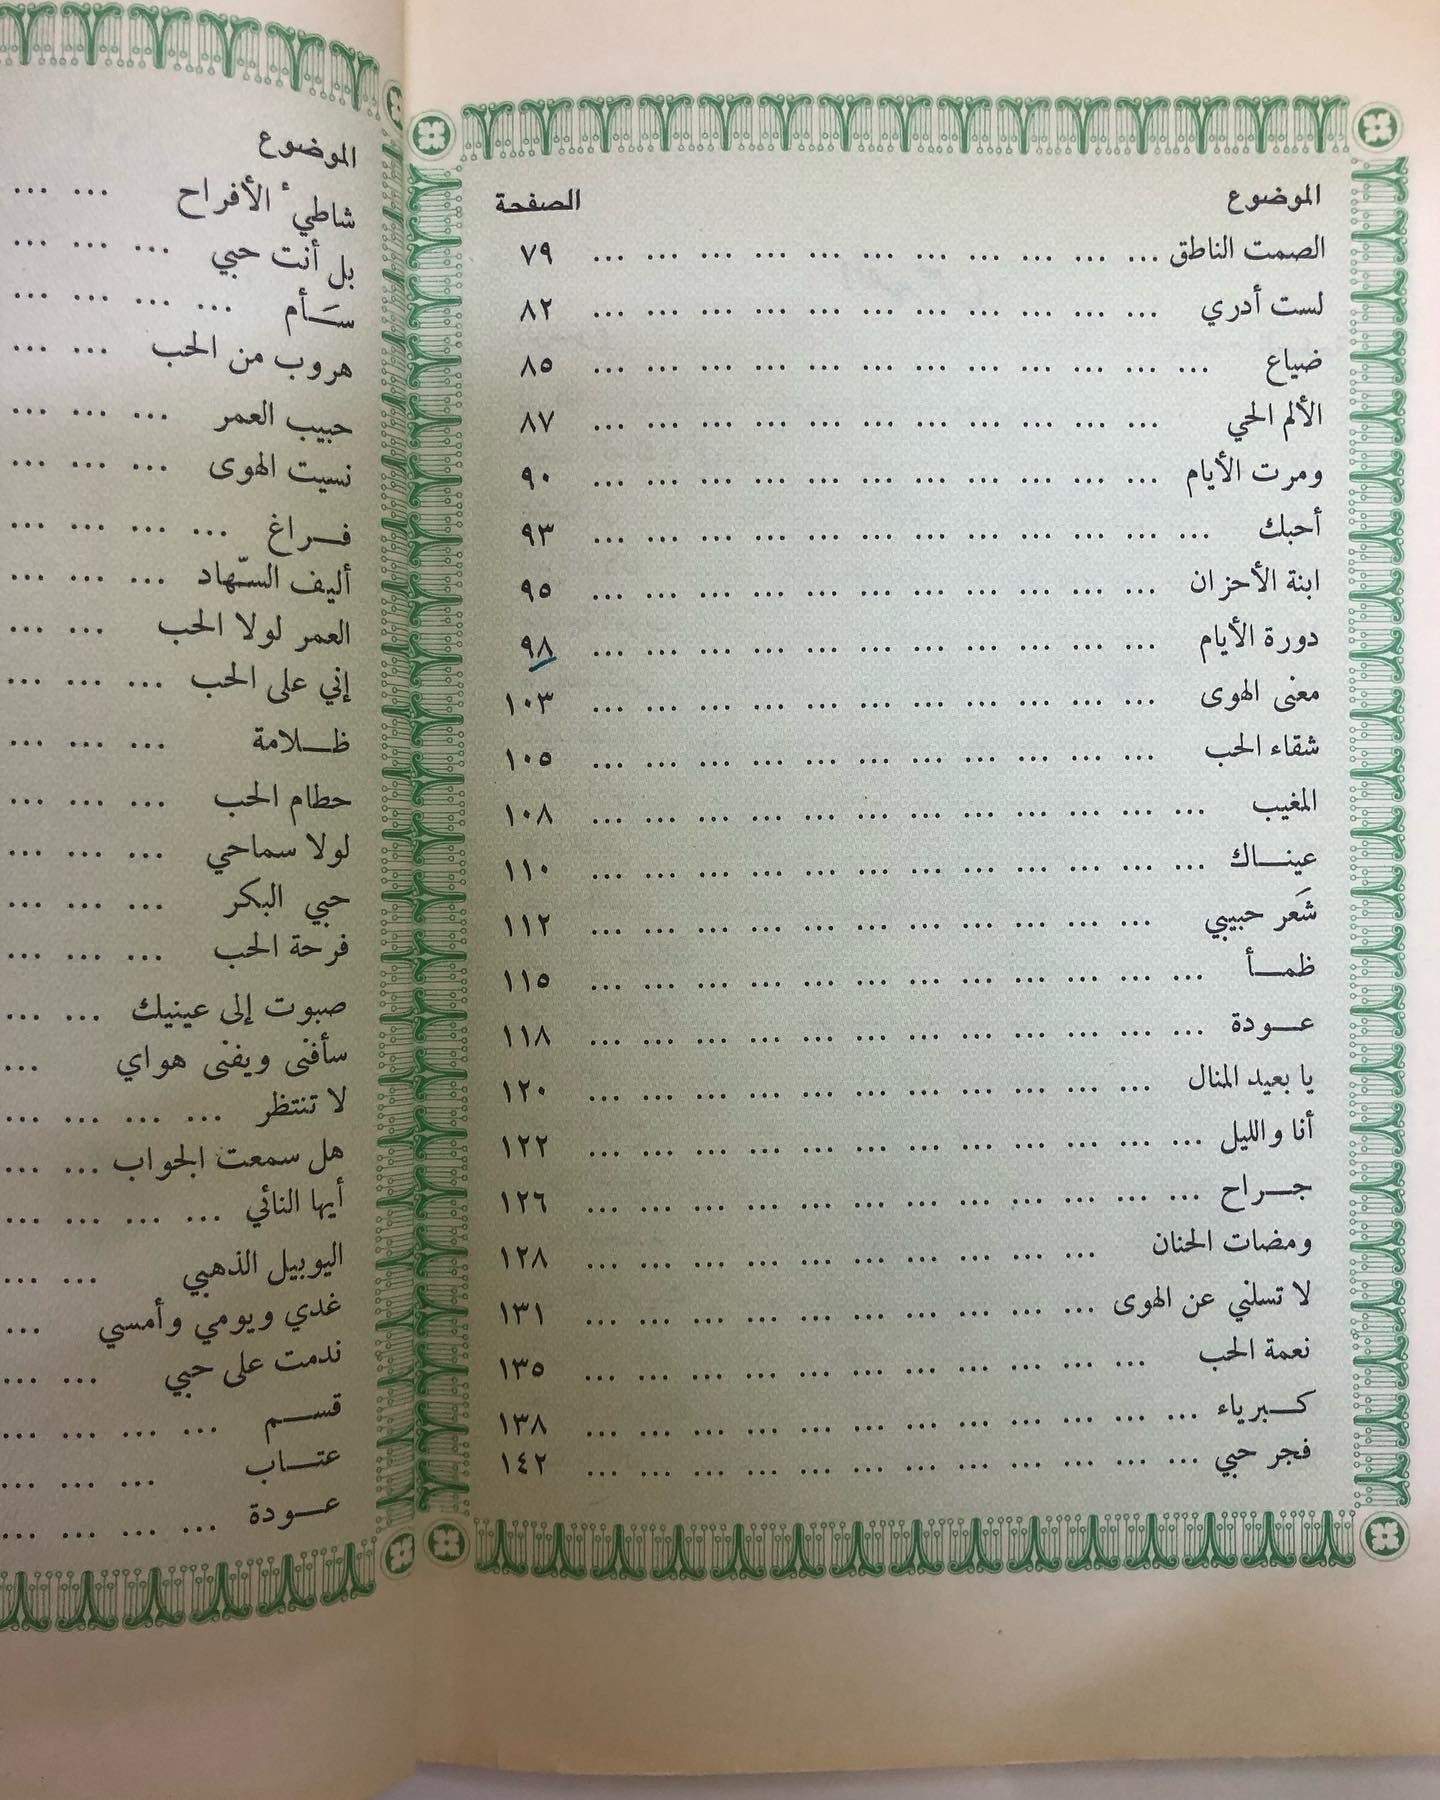 الموضوع الصفحة
الصمت الناطق ... ... ... ... ... ... ... ... ... ... ... ٧٩
لست أدري ... ... ... ... ... ... ... ... ... ... ... ٨٢
ضياع ... ... ... ... ... ... ... ... ... ... ... ... ٨٥
الألم الحي ... ... ... ... ... ... ... ... ... ... ... ٨٧
ومرت الأيام ... ... ... ... ... ... ... ... ... ... ... ٩٠
أحبك ... ... ... ... ... ... ... ... ... ... ... ... ٩٣
ابنة الأحزان ... ... ... ... ... ... ... ... ... ... ... ٩٥
دورة الأيام ... ... ... ... ... ... ... ... ... ... ... ٩٨
معنى الهوى ... ... ... ... ... ... ... ... ... ... ... ١٠٣
شقاء الحب ... ... ... ... ... ... ... ... ... ... ... ١٠٥
المغيب ... ... ... ... ... ... ... ... ... ... ... ... ١٠٨
عينـــاك ... ... ... ... ... ... ... ... ... ... ... ... ١١٠
شَعر حبيبي ... ... ... ... ... ... ... ... ... ... ... ١١٢
ظمـــأ ... ... ... ... ... ... ... ... ... ... ... ... ١١٥
عـــودة ... ... ... ... ... ... ... ... ... ... ... ... ١١٨
يا بعيد المنال ... ... ... ... ... ... ... ... ... ... ... ١٢٠
أنا والليل ... ... ... ... ... ... ... ... ... ... ... ... ١٢٢
جـــراح ... ... ... ... ... ... ... ... ... ... ... ... ١٢٦
ومضات الحنان ... ... ... ... ... ... ... ... ... ... ١٢٨
لا تسلني عن الهوى ... ... ... ... ... ... ... ... ... ... ١٣١
نعمة الحب ... ... ... ... ... ... ... ... ... ... ... ١٣٥
كـــبرياء ... ... ... ... ... ... ... ... ... ... ... ... ١٣٨
فجر حبي ... ... ... ... ... ... ... ... ... ... ... ... ١٤٢
الموضوع
شاطيء الأفراح ... ...
بل أنت حبي ... ... ...
ســَـأم ... ... ... ...
هروب من الحب ... ...
حبيب العمر ... ... ...
نسيت الهوى ... ... ...
فـــراغ ... ... ... ...
أليف السّهاد ... ... ...
العمر لولا الحب ... ...
إني على الحب ... ... ...
ظـــلامة ... ... ...
حطام الحب ... ... ...
لولا سماحي ... ... ...
حبي البكر ... ... ...
فرحة الحب ... ... ...
صبوت إلى عينيك ... ...
سأفنى ويفنى هواي ...
لا تنتظر ... ... ... ...
هل سمعت الجواب ... ...
أيها النائي ... ... ... ...
اليوبيل الذهبي ... ...
غدي ويومي وأمسي ...
ندمت على حبي ... ...
قســـم ... ... ... ...
عتـــاب ... ... ...
عـــودة ... ... ... ...